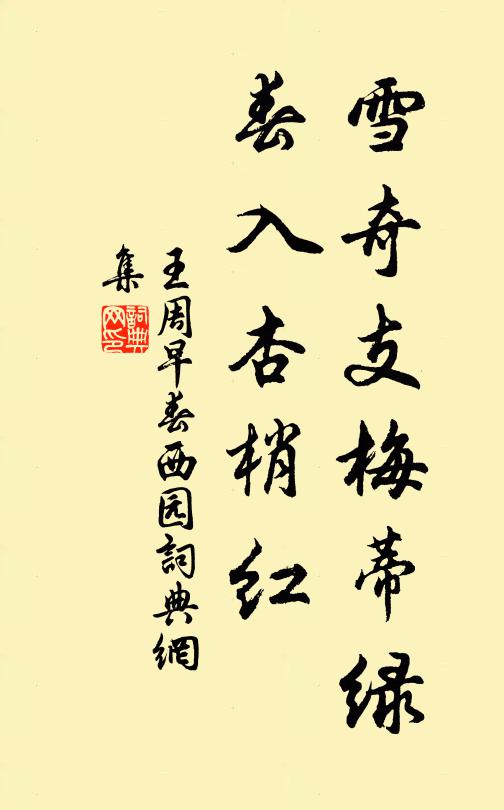 雪奇支梅蒂绿
春入杏梢红
王周早春西园詞典網
集
詞典
网印